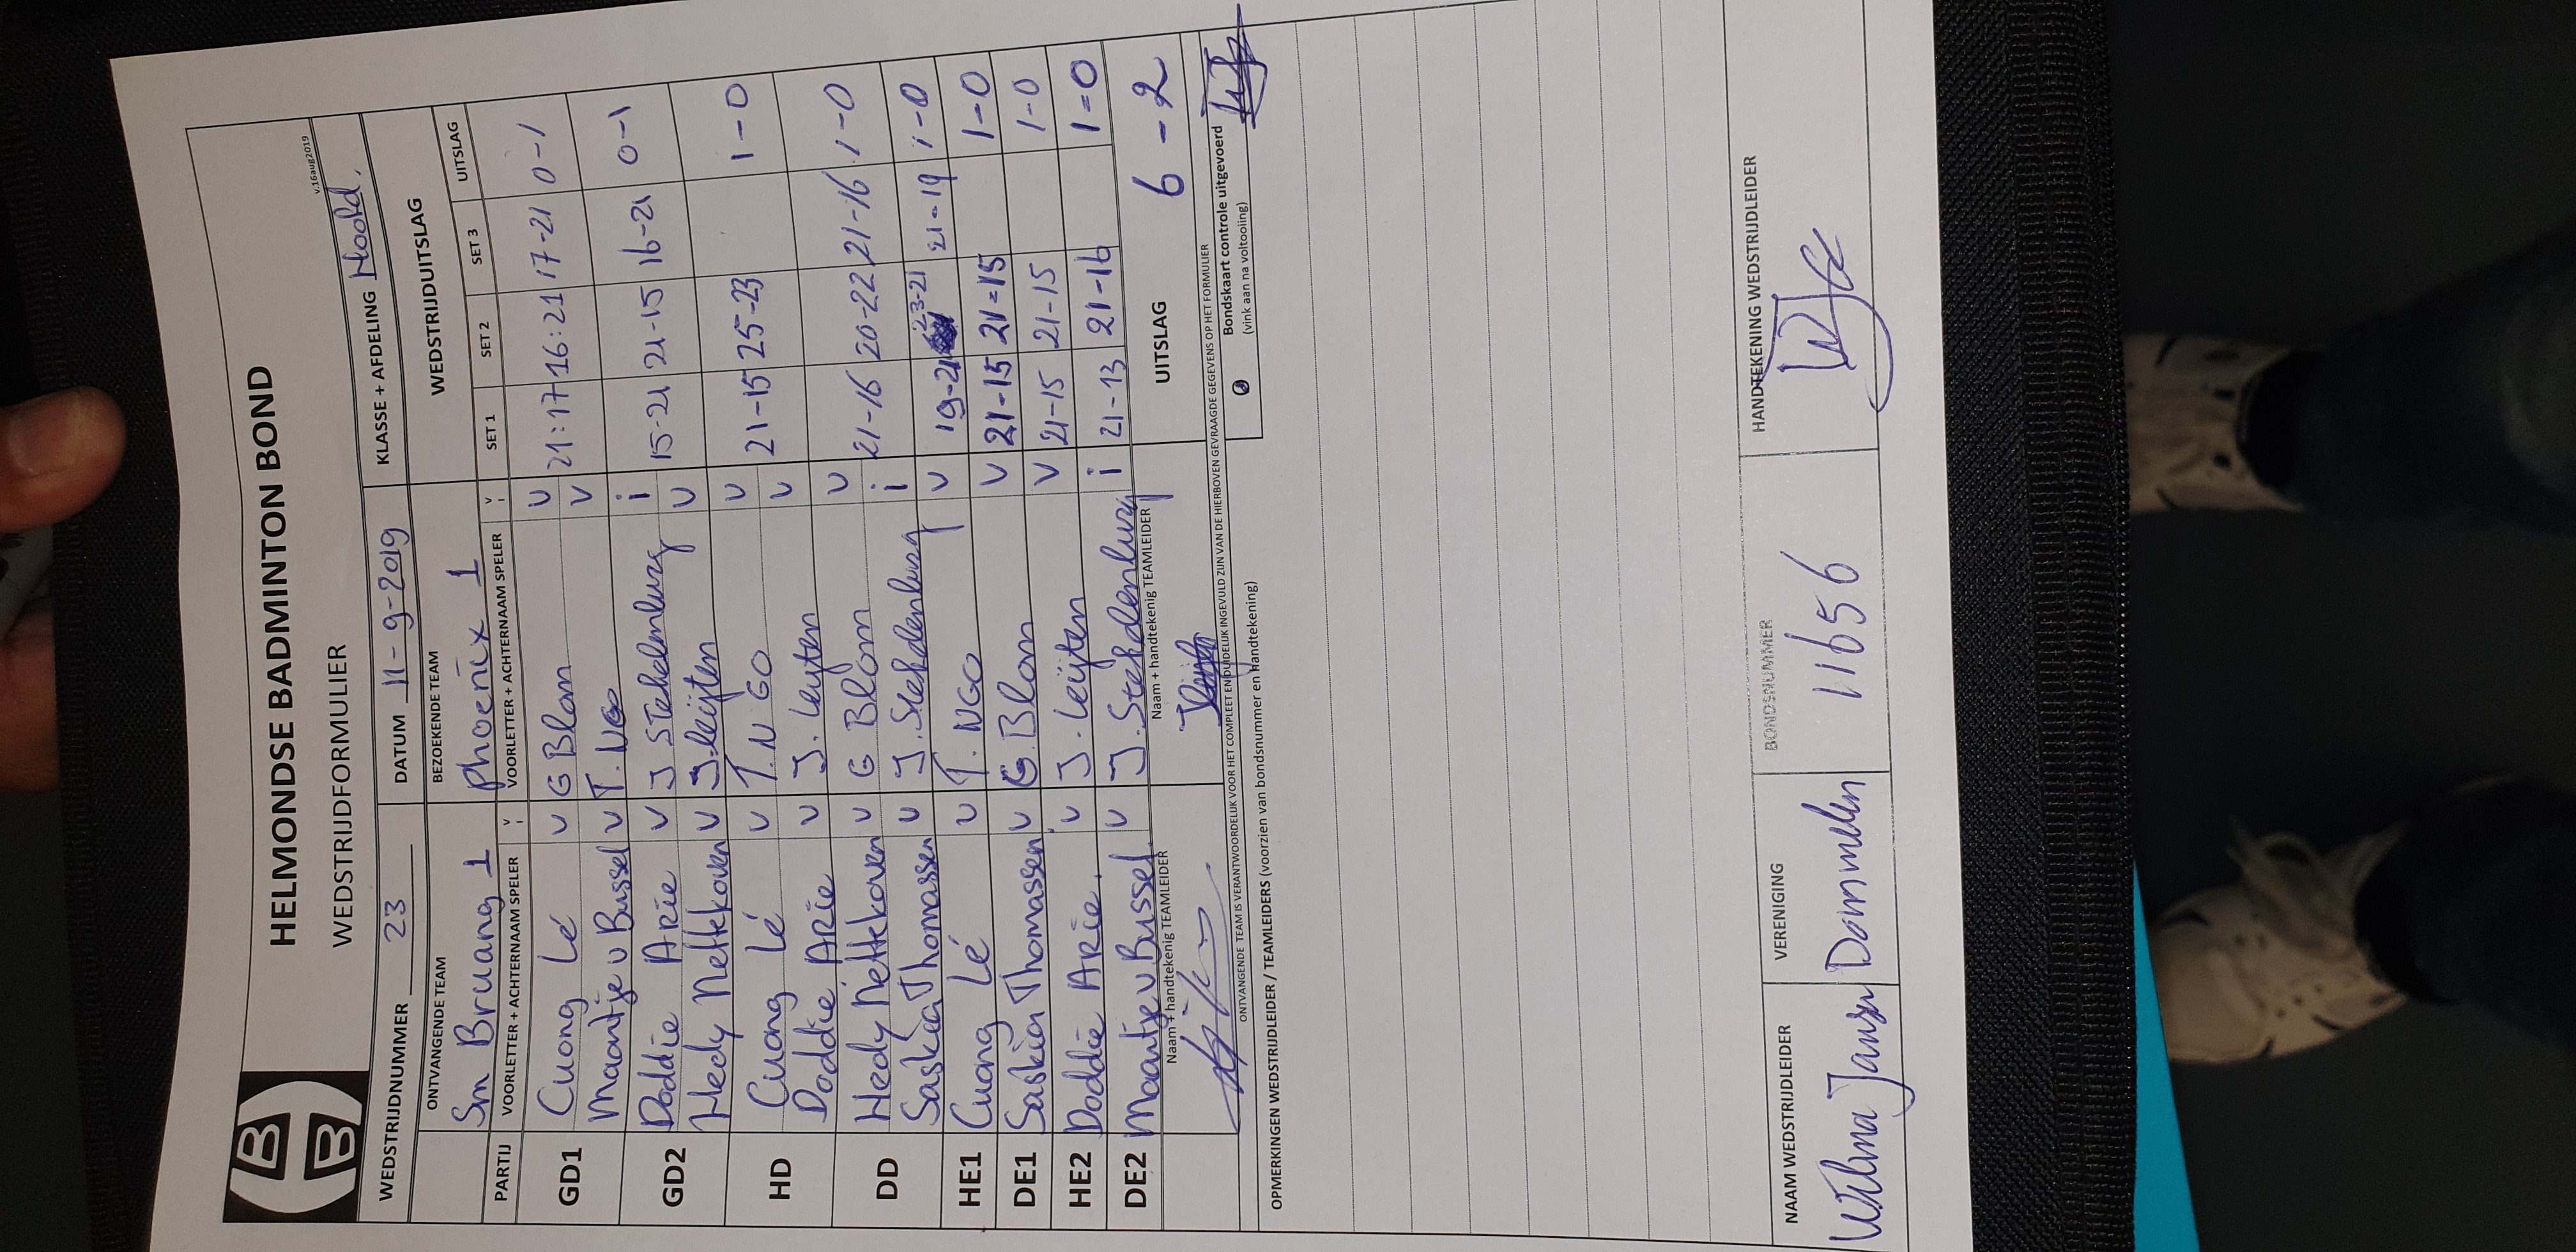 HELMONDSE BADMINTON BOND
WEDSTRIJDFORMULIER
v.16aug2019
WEDSTRIJDNUMMER 23 DATUM 11-9-2019 KLASSE + AFDELING Hoofd.
ONTVANGENDE TEAM BEZOEKENDE TEAM WEDSTRIJDUITSLAG
Sm Bruang 1 Phoenix 1
PARTIJ VOORLETTER + ACHTERNAAM SPELER V I VOORLETTER + ACHTERNAAM SPELER V I SET 1 SET 2 SET 3 UITSLAG
GD1 Cuong Lé v G Blom v 21:17 16:21 17-21 0-1
Maantje v Bussel v T. NGO v
GD2 Doddie Arie v J Stekelenburg i 15-21 21-15 16-21 0-1
Hedy Nettkoven v J. Leijten v
HD Cuong Lé v T. NGO v 21-15 25-23 1-0
Doddie Arie v J. Leijten v
DD Hedy Nettkoven v G Blom v 21-16 20-22 21-16 1-0
Saskia Thomassen v J. Stekelenburg i
HE1 Cuong Lé v T. NGO v 19-21 23-21 21-19 1-0
DE1 Saskia Thomassen v G. Blom v 21-15 21=15 1-0
HE2 Doddie Arie. v J. Leijten v 21-15 21-15 1-0
DE2 Maantje v Bussel v J. Stekelenburg i 21-13 21-16 1=0
Naam + handtekenig TEAMLEIDER Naam + handtekenig TEAMLEIDER UITSLAG 6-2
ONTVANGENDE TEAM IS VERANTWOORDELIJK VOOR HET COMPLEET EN DUIDELIJK INGEVULD ZIJN VAN DE HIERBOVEN GEVRAAGDE GEGEVENS OP HET FORMULIER
Bondskaart controle uitgevoerd
(vink aan na voltooiing)
OPMERKINGEN WEDSTRIJDLEIDER / TEAMLEIDERS (voorzien van bondsnummer en handtekening)
NAAM WEDSTRIJDLEIDER VERENIGING BONDSNUMMER HANDTEKENING WEDSTRIJDLEIDER
Wilma Jansen Dommelen 11656